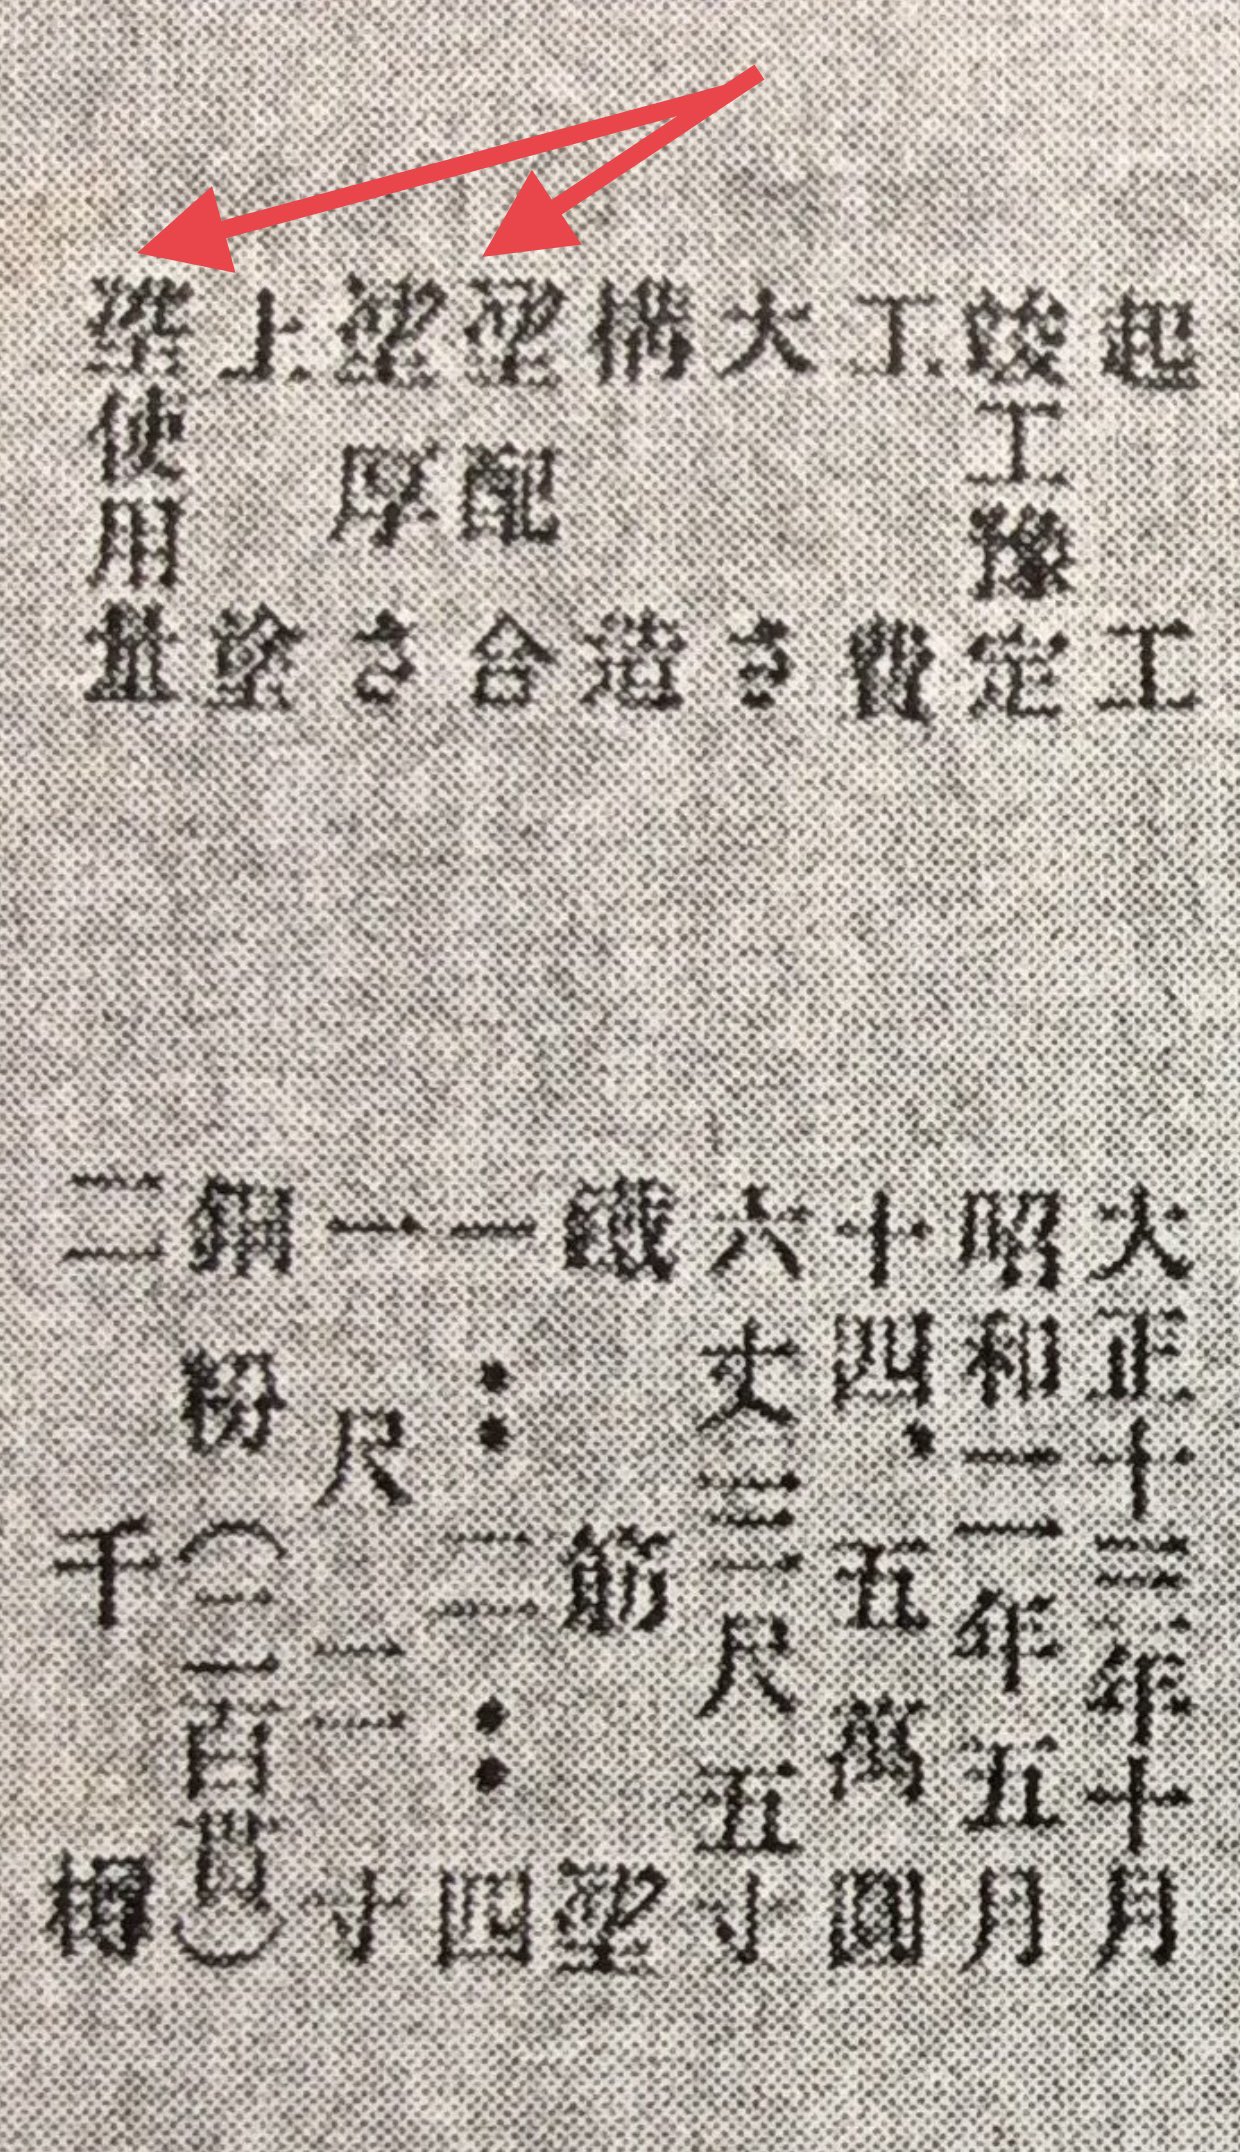 起工 大正十三年十月
竣工豫定 昭和二年五月
工費 十四、五萬圓
大さ 六丈三尺五寸
構造 鐵筋
配合 一:二:四
厚さ 一尺二寸
上塗 鋼粉(二百貫)
使用量 二千樽